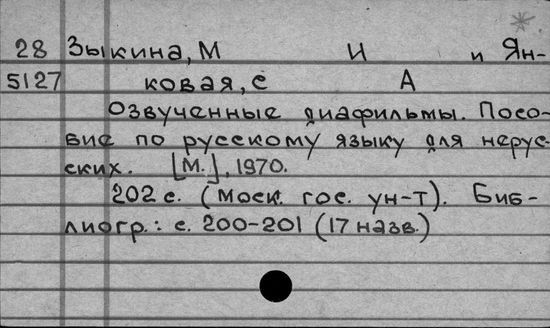 28 Зыкина, М И и Ян-
5127 ковая, С А
Озвученные диафильмы. Посо-
бие по русскому языку для нерус-
ских. [М.], 1970.
202 с. (Моск. гос. ун-т). Биб-
лиогр.: с. 200-201 (17 назв.)